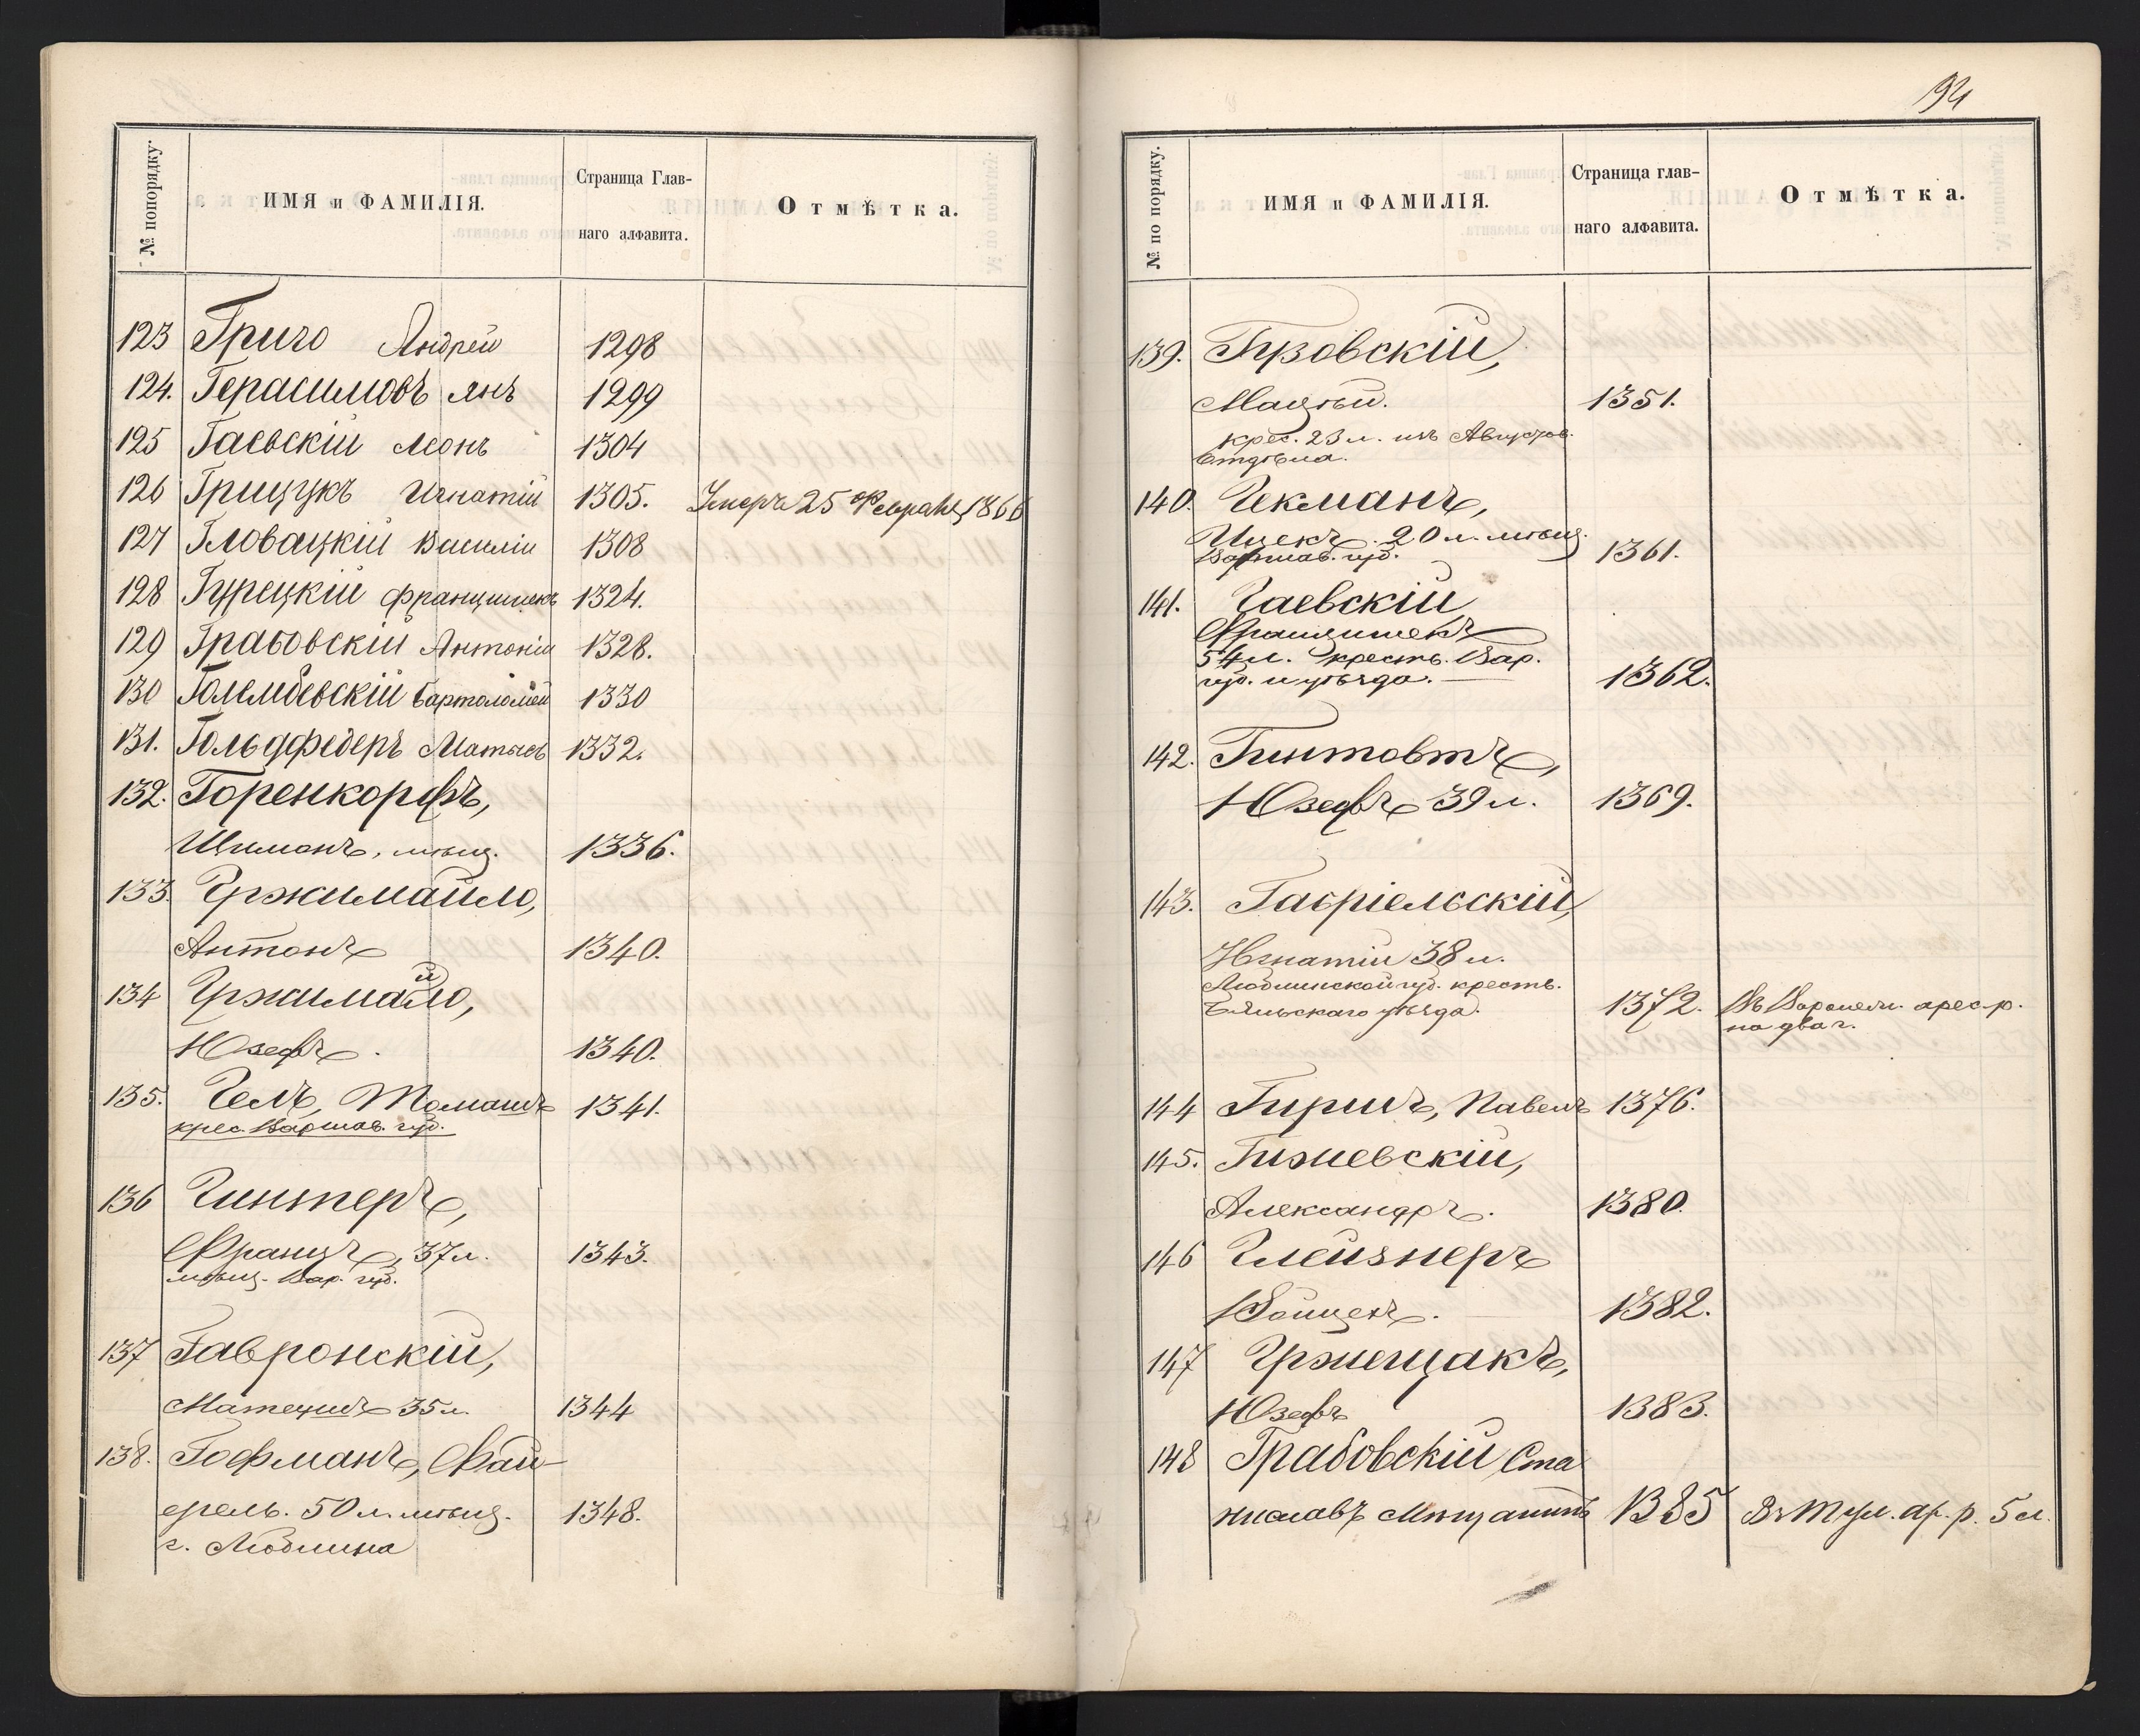 № попорядку.
ИМЯ и ФАМИЛІЯ.
Страница Глав-
наго алфавита.
Отмѣтка.
123 Григо Андрей 1298
124. Герасимовъ Янъ 1299
125 Гаевскій Леонъ 1304
126 Грицукъ Игнатій 1305. Умеръ 25 Февраля 1866
127 Гловацкій Василій 1308
128 Гурецкій Францишекъ 1324.
129 Грабовскій Антоній 1328.
130 Голембевскій Бартоломей 1330
131. Гольдфедеръ Матысъ 1332.
132. Горенкорфъ,
Шимонъ, мѣщ. 1336.
133. Гржимайло,
Антонъ 1340.
134 Гржимайло,
Юзефъ. 1340.
135. Гелъ, Томашъ 1341.
крес. Варшав. губ.
136 Гинтеръ,
Францъ, 37 л. 1343.
мѣщ. Вар. губ.
137 Гавронскій,
Матеушъ 35 л. 1344
138. Гофманъ, Фай-
ерель. 50 л. мѣщ. 1348.
г. Люблина
94
№ по порядку.
ИМЯ и ФАМИЛІЯ.
Страница глав-
наго алфавита.
Отмѣтка.
139. Гузовскій,
Мацѣй. 1351.
крес. 23 л. изъ Августов.
Отдѣла.
140. Гекманъ,
Ицекъ. 20 л. мѣщ.
Варшав. губ. 1361.
141. Гаевскій
Францишекъ
54 л. крестъ. Вар.
губ. и уѣзда. 1362.
142. Гинтовтъ,
Юзефъ 39 л. 1369.
143. Габріельскій,
Игнатій 38 л.
Люблинской губ. крестъ.
Бяльскаго уѣзда. 1372. Въ Воронеж. арес. р.
на два г.
144 Гиринъ, Павелъ 1376.
145. Гижевскій,
Александръ. 1380.
146 Глейзнеръ
Войцехъ. 1382.
147 Гржещакъ,
Юзефъ 1383.
148 Грабовскій Ста
ниславъ Мѣщанинъ 1385 Въ Тул. ар. р. 5 л.